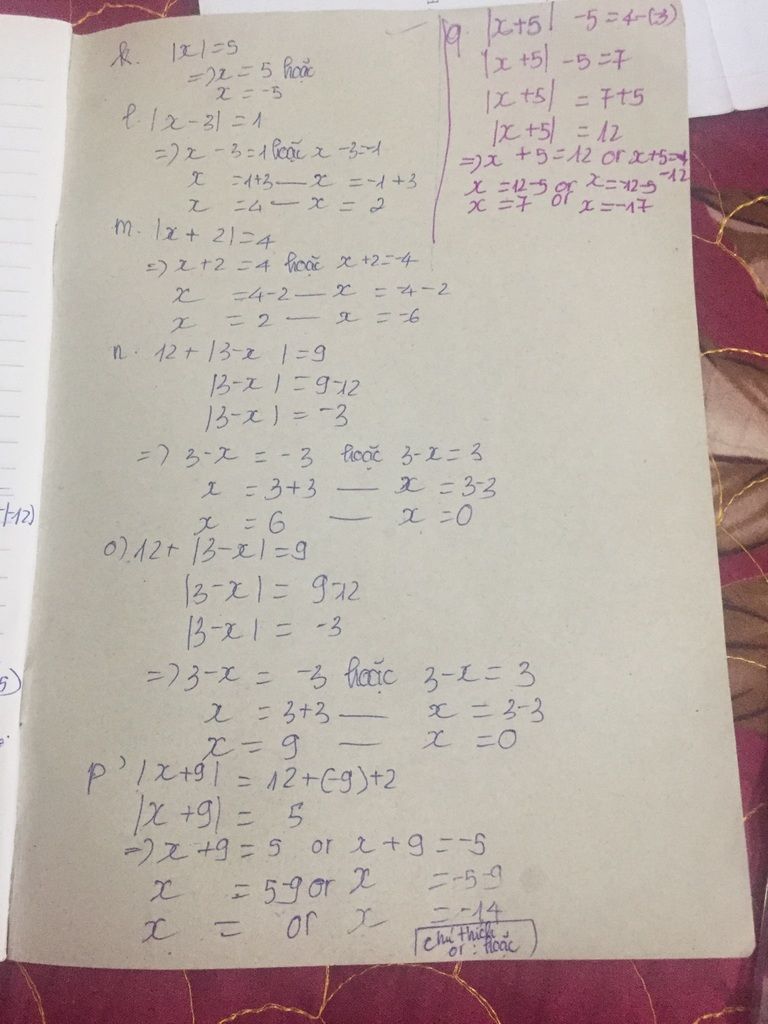 k. |x|=5
=> x = 5 hoặc
x = -5
l. |x-3| = 1
=> x -3=1 hoặc x -3=-1
x =1+3 — x = -1+3
x =4 — x = 2
m. |x+2|=4
=> x+2 =4 hoặc x+2=-4
x =4-2 — x = -4-2
x = 2 — x = -6
n. 12+|3-x |=9
|3-x | = 9-12
|3-x | = -3
=> 3-x = -3 hoặc 3-x=3
x = 3+3 — x = 3-3
x = 6 — x =0
o) 12+ |3-x|=9
|3-x| = 9-12
|3-x| = -3
=> 3-x = -3 hoặc 3-x= 3
x = 3+3 — x = 3-3
x = 9 — x =0
p) |x+9| = 12+(-9)+2
|x+9| = 5
=> x+9=5 or x+9=-5
x = 5-9 or x =-5-9
x = or x =-14
chú thích
or : hoặc
q. |x+5| -5=4-(3)
|x+5| -5=7
|x+5| = 7+5
|x+5| = 12
=> x +5=12 or x+5=
-12
x =12-5 or x=-12-5
x =7 or x=-17
-12)
5)